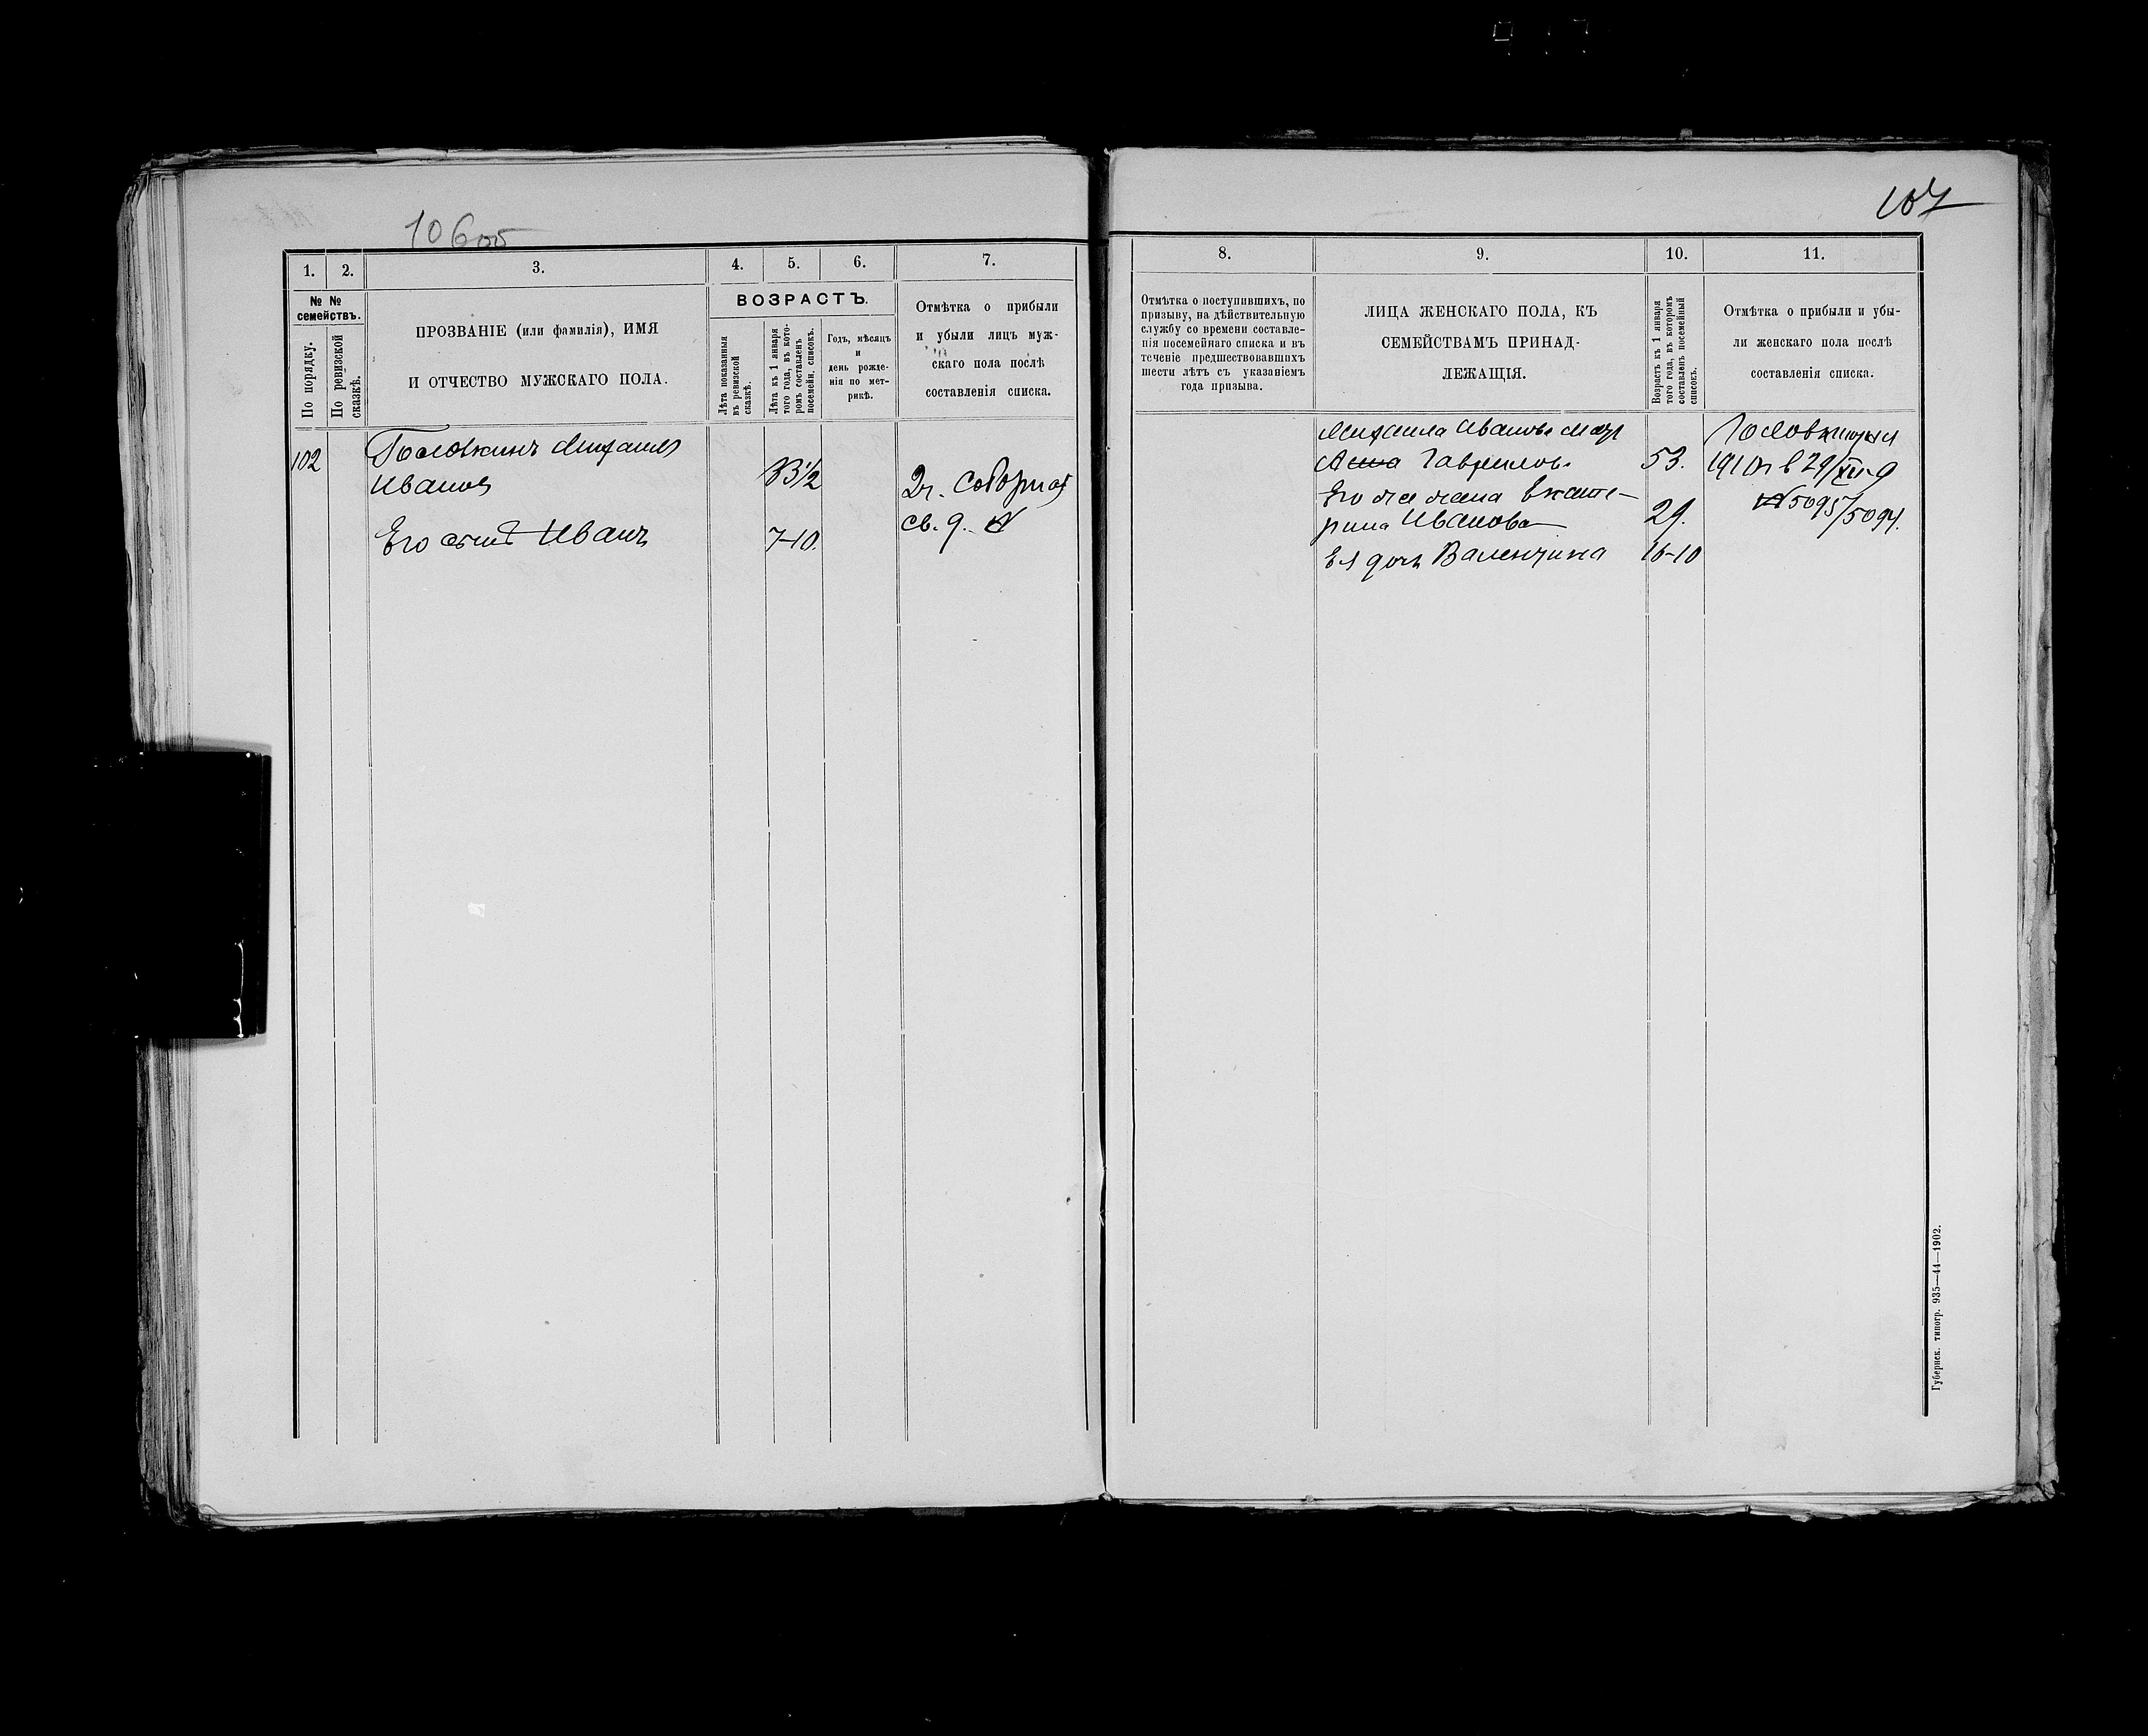 106об
107
1.
2.
3.
4.
5.
6.
7.
№ №
семействъ.
По порядку.
По ревизской
сказкѣ.
ПРОЗВАНІЕ (или фамилія), ИМЯ
И ОТЧЕСТВО МУЖСКАГО ПОЛА.
ВОЗРАСТЪ.
Лѣта показанныя
въ ревизской
сказкѣ.
Лѣта къ 1 января
того года, въ кото-
ромъ составленъ
посемейн. списокъ.
Годъ, мѣсяцъ
и
день рожде-
нія по мет-
рикѣ.
Отмѣтка о прибыли
и убыли лицъ муж-
скаго пола послѣ
составленія списка.
102
Головкинъ Михаилъ
Ивановъ
33½
Его сынъ Иванъ
7-10.
2ч. Соборная
св. д.
8.
9.
10.
11.
Отмѣтка о поступившихъ, по
призыву, на дѣйствительную
службу со времени составле-
нія посемейнаго списка и въ
теченіе предшествовавшихъ
шести лѣтъ съ указаніемъ
года призыва.
ЛИЦА ЖЕНСКАГО ПОЛА, КЪ
СЕМЕЙСТВАМЪ ПРИНАД-
ЛЕЖАЩІЯ.
Возрастъ къ 1 января
того года, въ которомъ
составленъ посемейный
списокъ.
Отмѣтка о прибыли и убы-
ли женскаго пола послѣ
составленія списка.
Михаила Иванова мать
Анна Гаврилов.
53.
Его же жена Екате-
рина Иванова
29.
Ея дочь Валентина
16-10
1910г. 29/XII-9
№ 5095/5094.
Губернск. типогр. 935—44—1902.